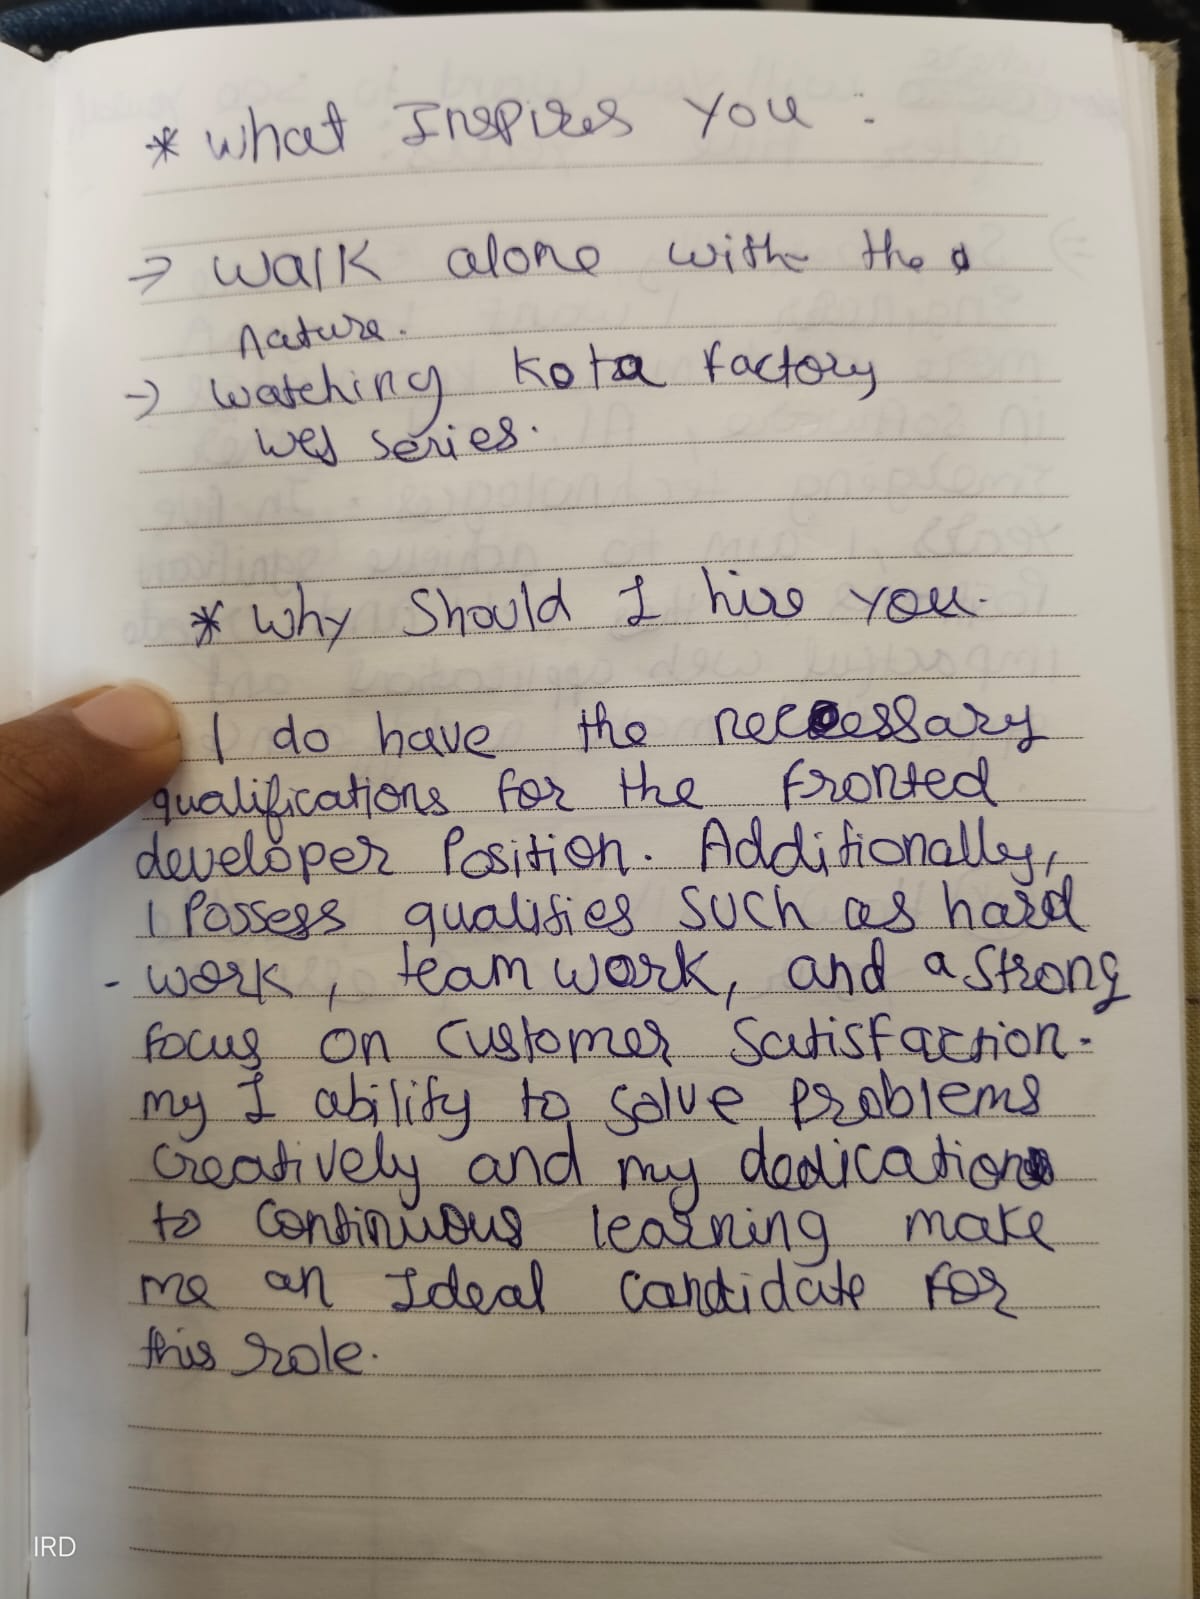 * What Inspires You :
→ Walk alone with the
nature.
→ watching Kota factory
web series.
* Why Should I hire you.
I do have the neccessary
qualifications for the fronted
developer Position. Additionally,
I Possess qualities such as hard
- work, team work, and a strong
focus on customer satisfaction.
my I ability to solve problems
creatively and my dedication
to continuous learning make
me an Ideal candidate for
this role.
IRD